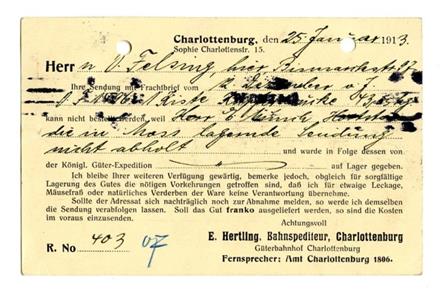 Charlottenburg, den 25. Januar 1913.
Sophie Charlottenstr. 15.
Herr n O. Felsing, hier Bismarckstr.
Ihre Sendung mit Frachtbrief vom Dezember v. J.
Kiste
kann nicht bestellt werden, weil Herr E.
die in Mass lagernde Sendung
nicht abholt und wurde in Folge dessen von
der Königl. Güter-Expedition auf Lager gegeben.
Ich bleibe Ihrer weiteren Verfügung gewärtig, bemerke jedoch, obgleich für sorgfältige
Lagerung des Gutes die nötigen Vorkehrungen getroffen sind, daß ich für etwaige Leckage,
Mäusefraß oder natürliches Verderben der Ware keine Verantwortung übernehme.
Sollte der Adressat sich nachträglich noch zur Abnahme melden, so werde ich demselben
die Sendung verabfolgen lassen. Soll das Gut franko ausgeliefert werden, so sind die Kosten
im voraus einzusenden.
Achtungsvoll
R. No 403 07
E. Hertling, Bahnspediteur, Charlottenburg
Güterbahnhof Charlottenburg
Fernsprecher: Amt Charlottenburg 1806.